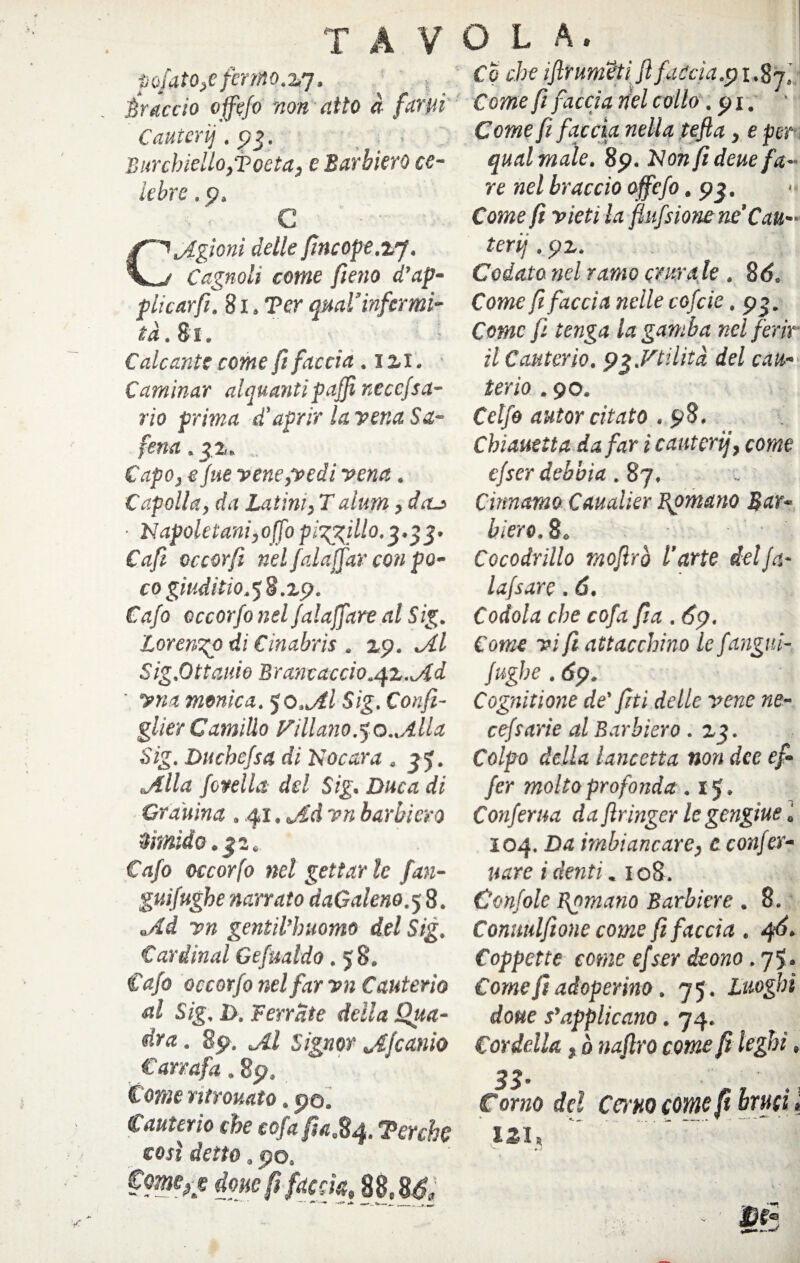 TAVOLA.
posato, e fermo.27.
Braccio offeso non atto à farui
Cauterij. 93.
Burchiello, Poeta, e Barbiero ce-
lebre. 9.
C
CAgioni delle sincope.27.
Cagnoli come sieno d'ap-
plicarsi. 81. Per qual'infermi-
tà. 81.
Calcante come si faccia. 121.
Caminar alquanti passi necessa-
rio prima d'aprir la vena Sa-
fena. 32.
Capo, e sue vene, vedi vena.
Capolla, da Latini, Talum, da
Napoletani, osso pizzillo. 3.33.
Casi occorsi nel salassar con po-
co giuditio.58.29.
Caso occorso nel salassare al Sig.
Lorenzo di Cinabris. 29. Al
Sig. Ottauio Brancaccio.42. Ad
vna monica. 50. Al Sig. Consi-
glier Camillo Villano.50. Alla
Sig. Duchessa di Nocara. 35.
Alla sorella del Sig. Duca di
Grauina. 41. Ad vn barbiero
timido. 32.
Caso occorso nel gettar le san-
guisughe narrato da Galeno.58.
Ad vn gentil'huomo del Sig.
Cardinal Gesualdo. 58.
Caso occorso nel far vn Cauterio
al Sig. D. Ferrate della Qua-
dra. 89. Al Signor Ascanio
Carrafa. 89.
Come ritrouato. 90.
Cauterio che cosa sia.84. Perche
così detto. 90.
Come, e doue si faccia. 88.86.
Cō che istrumēti si faccia.91.87.
Come si faccia nel collo. 91.
Come si faccia nella testa, e per
qual male. 89. Non si deue fa-
re nel braccio offeso. 93.
Come si vieti la flussione ne' Cau-
terij. 92.
Codato nel ramo crurale. 86.
Come si faccia nelle coscie. 93.
Come si tenga la gamba nel ferir
il Cauterio. 93. Vtilità del cau-
terio. 90.
Celso autor citato. 98.
Chiauetta da far i cauterij, come
esser debbia. 87.
Cinnamo Caualier Romano Bar-
biero. 8.
Cocodrillo mostrò l'arte del sa-
lassare. 6.
Codola che cosa sia. 69.
Come vi si attacchino le sangui-
sughe. 69.
Cognitione de' siti delle vene ne-
cessarie al Barbiero. 23.
Colpo della lancetta non dee es-
ser molto profonda. 15.
Conserua da stringer le gengiue.
104. Da imbiancare, e conser-
uare i denti. 108.
Console Romano Barbiere. 8.
Conuulsione come si faccia. 46.
Coppette come esser deono. 75.
Come si adoperino. 75. Luoghi
doue s'applicano. 74.
Cordella, ò nastro come si leghi.
33.
Corno del Ceruo come si bruci.
121.
De-